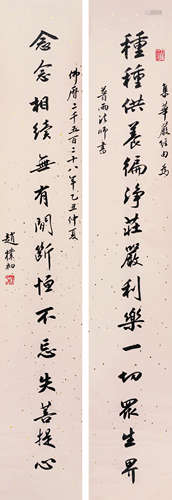 集華嚴經句為
種種供養徧淨莊嚴利樂一切眾生界
普雨法師書
佛曆二千五百二十八年乙丑仲夏
念念相續無有間斷恒不忘失菩提心
趙樸初